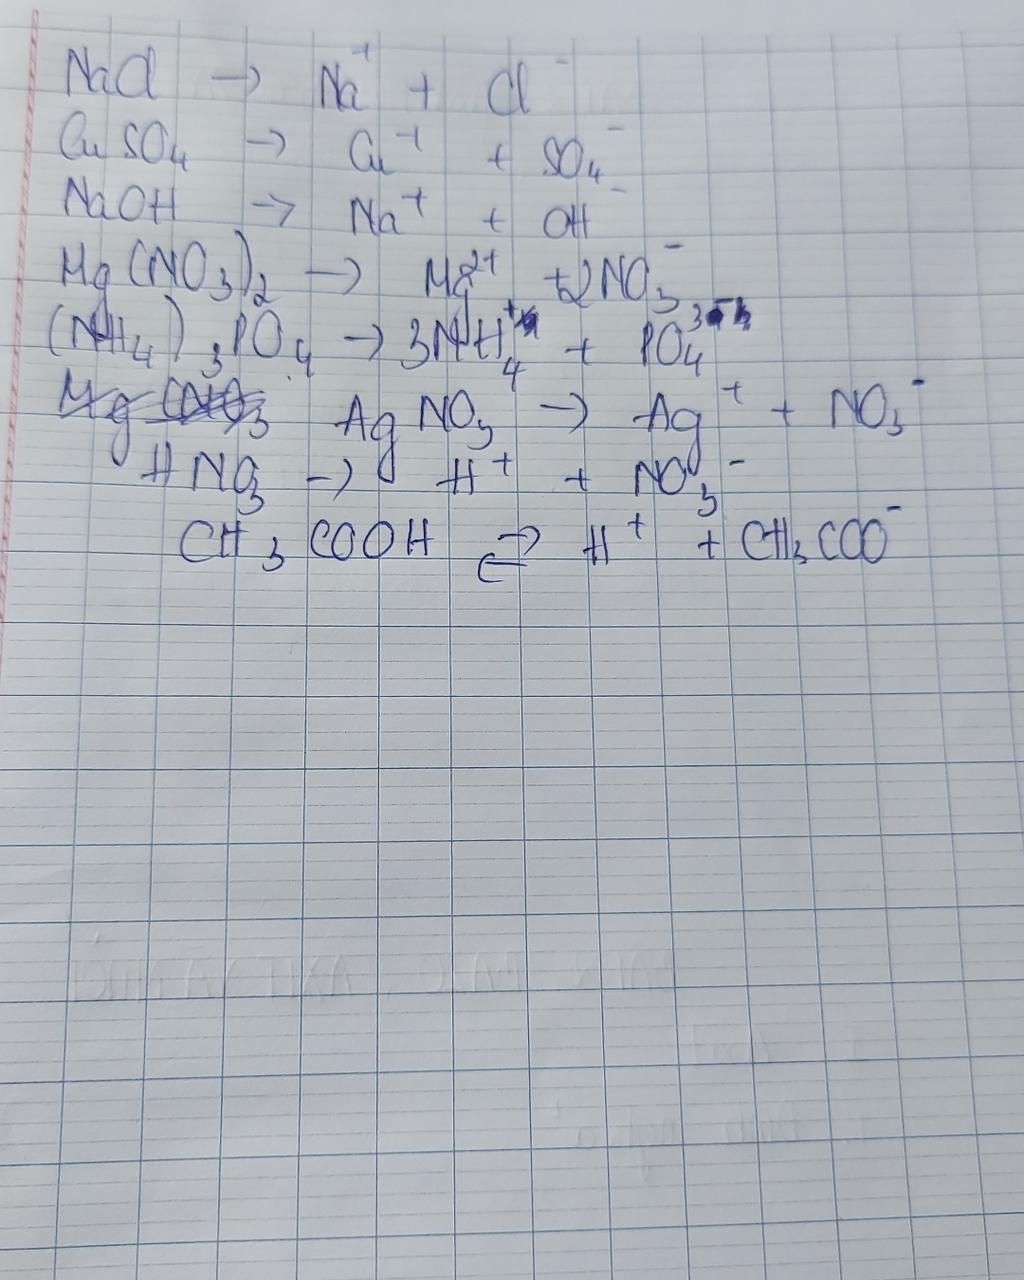 NaCl → Na⁺ + Cl⁻
CuSO₄ → Cu⁺ + SO₄⁻
NaOH → Na⁺ + OH⁻
Mg(NO₃)₂ → Mg²⁺ + 2NO₃⁻
(NH₄)₃PO₄ → 3NH₄⁺ + PO₄³⁻
AgNO₃ → Ag⁺ + NO₃⁻
HNO₃ → H⁺ + NO₃⁻
CH₃COOH ⇌ H⁺ + CH₃COO⁻